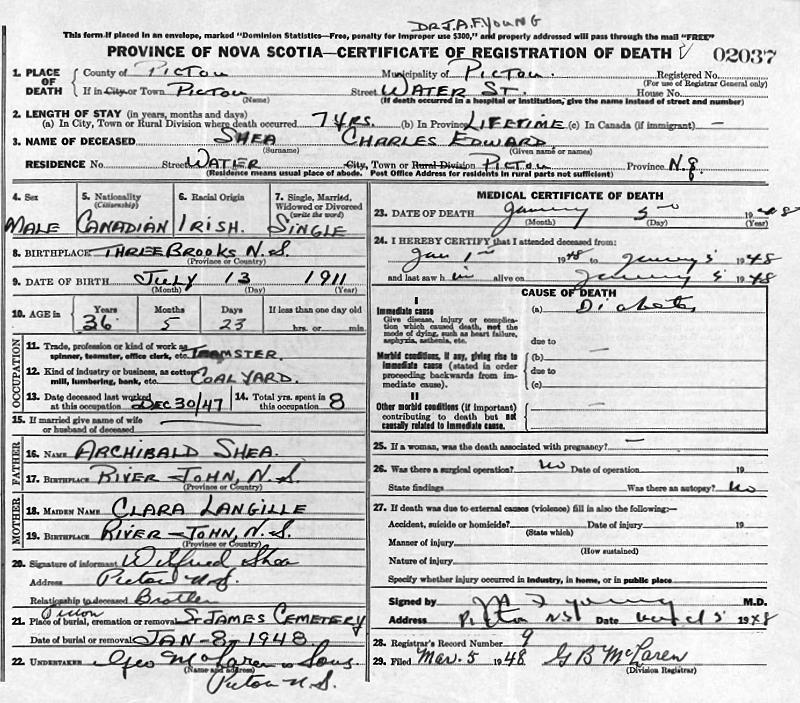 DR. J. A. F. YOUNG
This form if placed in an envelope, marked "Dominion Statistics—Free, penalty for improper use $300," and properly addressed will pass through the mail "FREE"
PROVINCE OF NOVA SCOTIA—CERTIFICATE OF REGISTRATION OF DEATH 02037
1. PLACE OF DEATH County of PICTOU Municipality of PICTOU. Registered No.
(For use of Registrar General only)
If in City or Town PICTOU Street WATER ST. House No.
(Name) (If death occurred in a hospital or institution, give the name instead of street and number)
2. LENGTH OF STAY (in years, months and days)
(a) In City, Town or Rural Division where death occurred 7 YRS. (b) In Province LIFETIME (c) In Canada (if immigrant) —
3. NAME OF DECEASED SHEA CHARLES EDWARD
(Surname) (Given name or names)
RESIDENCE No. Street WATER City, Town or Rural Division PICTOU Province N.S.
(Residence means usual place of abode. Post Office Address for residents in rural parts not sufficient)
4. Sex 5. Nationality (Citizenship) 6. Racial Origin 7. Single, Married, Widowed or Divorced (write the word)
MALE CANADIAN IRISH. SINGLE
8. BIRTHPLACE THREE BROOKS N.S.
(Province or Country)
9. DATE OF BIRTH JULY 13 1911
(Month) (Day) (Year)
10. AGE in Years Months Days If less than one day old
36 5 23 hrs. or min.
OCCUPATION
11. Trade, profession or kind of work as spinner, teamster, office clerk, etc. TEAMSTER.
12. Kind of industry or business, as cotton mill, lumbering, bank, etc. COAL YARD.
13. Date deceased last worked at this occupation DEC 30/47 14. Total yrs. spent in this occupation 8
15. If married give name of wife or husband of deceased
FATHER
16. NAME ARCHIBALD SHEA.
17. BIRTHPLACE RIVER JOHN, N.S.
(Province or Country)
MOTHER
18. MAIDEN NAME CLARA LANGILLE
19. BIRTHPLACE RIVER-JOHN, N.S.
(Province or Country)
20. Signature of informant Wilfred Shea
Address Pictou N.S.
Relationship to deceased Brother
Pictou
21. Place of burial, cremation or removal St. JAMES CEMETERY
Date of burial or removal JAN-8-1948.
22. UNDERTAKER Geo McLaren & Sons
(Name and address)
Pictou N.S.
MEDICAL CERTIFICATE OF DEATH
23. DATE OF DEATH January 5 1948
(Month) (Day) (Year)
24. I HEREBY CERTIFY that I attended deceased from:
Jan 1st 1948 to January 5 1948
and last saw him alive on January 5 1948
CAUSE OF DEATH
I
Immediate cause (a) Diabetes
Give disease, injury or complication which caused death, not the mode of dying, such as heart failure, asphyxia, asthenia, etc.
due to
Morbid conditions, if any, giving rise to immediate cause (stated in order proceeding backwards from immediate cause).
(b) —
due to
(c)
II
Other morbid conditions (if important) contributing to death but not causally related to immediate cause.
—
25. If a woman, was the death associated with pregnancy? —
26. Was there a surgical operation? No Date of operation 19
State findings Was there an autopsy? No
27. If death was due to external causes (violence) fill in also the following:—
Accident, suicide or homicide? Date of injury 19
(State which)
Manner of injury
(How sustained)
Nature of injury
Specify whether injury occurred in industry, in home, or in public place
Signed by Young M.D.
Address Pictou NS Date 5 1948
28. Registrar's Record Number 9
29. Filed Mar. 5 1948 G B McLaren
(Division Registrar)